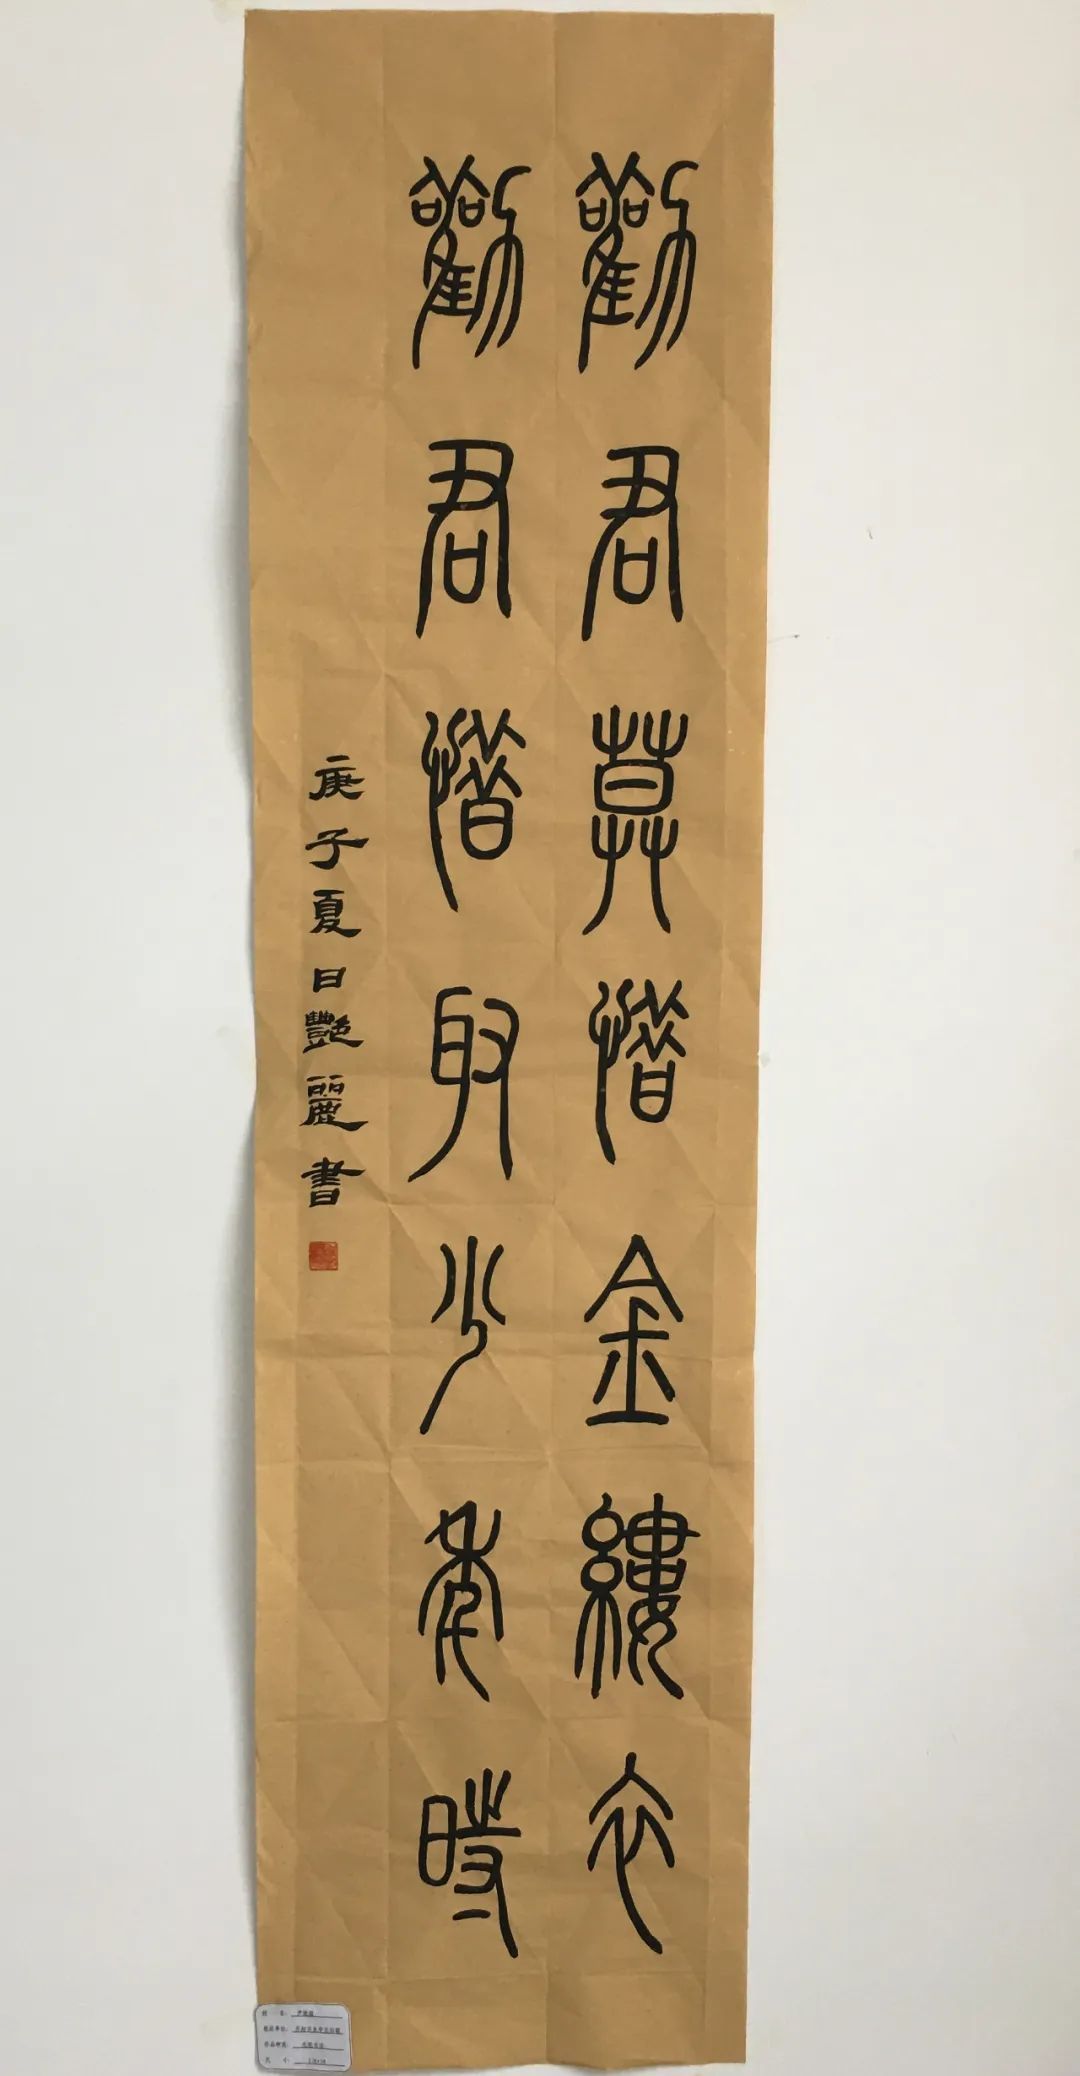 勸君莫惜金縷衣
勸君惜取少年時
庚子夏日艷麗書